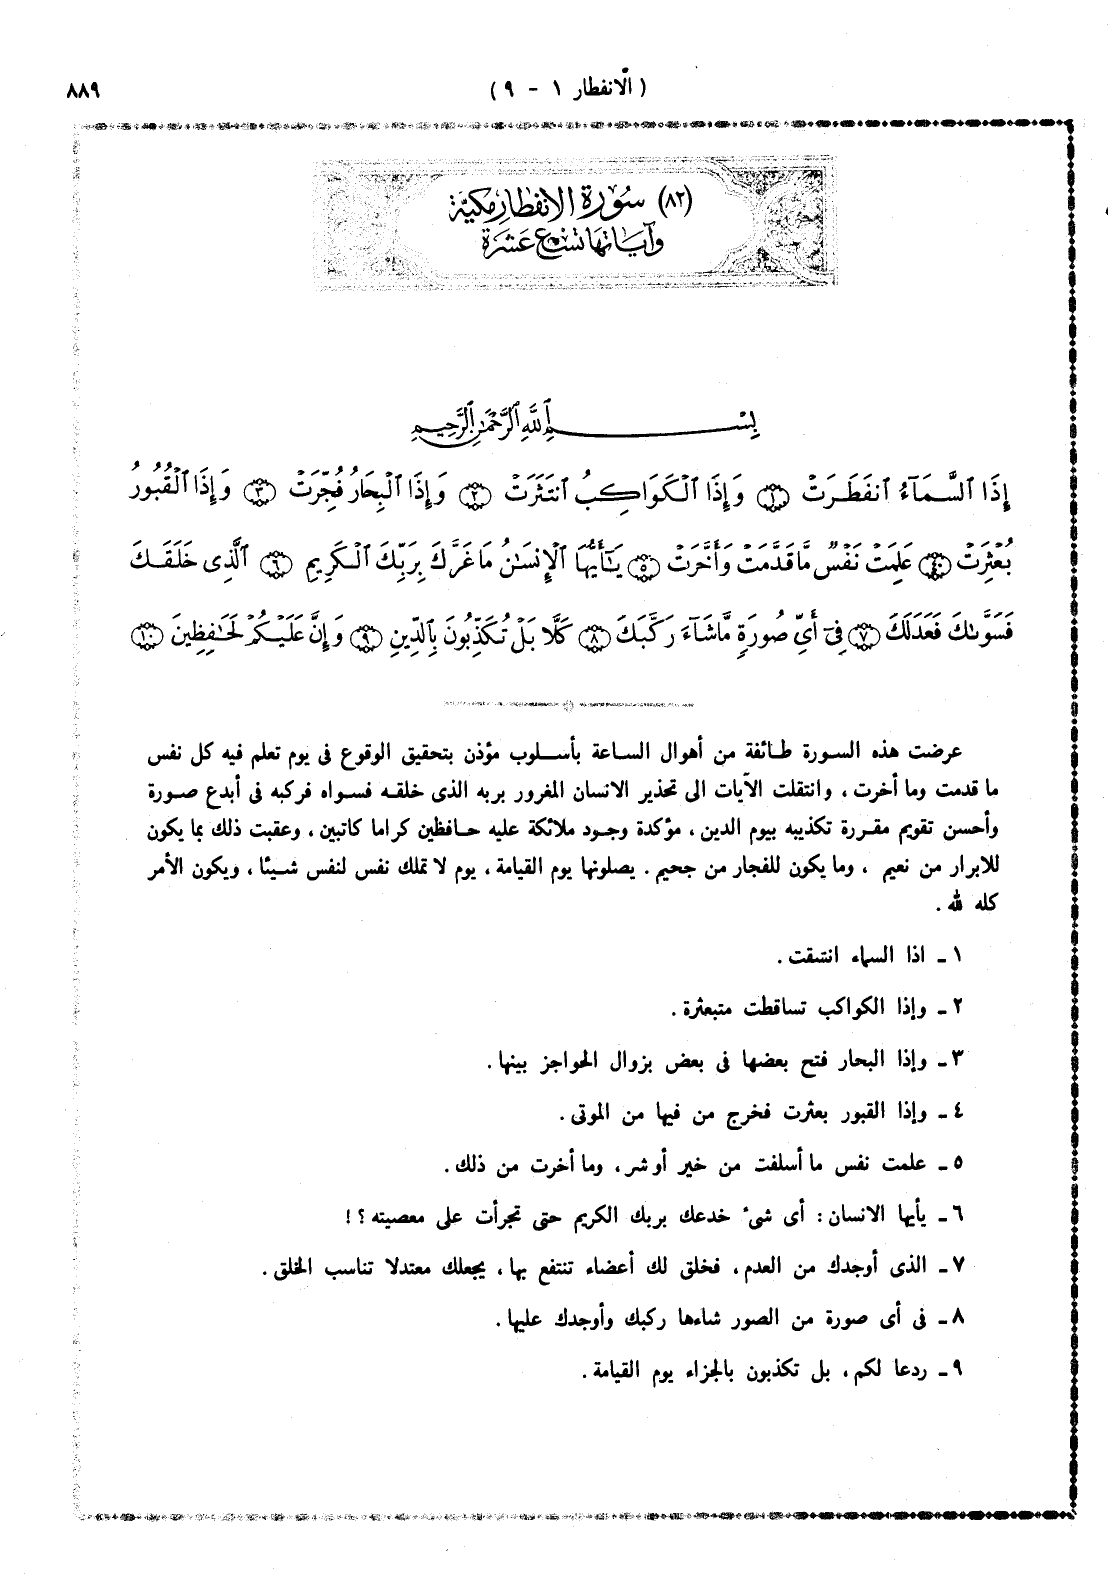 ( الانفطار ١ - ٩ )
٨٨٩
(٨٢) سُورَة الانفطار مكيّة
وآياتها تسع عَشَرَة
بِسْمِ ٱللَّهِ ٱلرَّحْمَٰنِ ٱلرَّحِيمِ
إِذَا ٱلسَّمَآءُ ٱنفَطَرَتْ ۝١ وَإِذَا ٱلْكَوَاكِبُ ٱنتَثَرَتْ ۝٢ وَإِذَا ٱلْبِحَارُ فُجِّرَتْ ۝٣ وَإِذَا ٱلْقُبُورُ
بُعْثِرَتْ ۝٤ عَلِمَتْ نَفْسٌ مَّا قَدَّمَتْ وَأَخَّرَتْ ۝٥ يَٰٓأَيُّهَا ٱلْإِنسَٰنُ مَا غَرَّكَ بِرَبِّكَ ٱلْكَرِيمِ ۝٦ ٱلَّذِى خَلَقَكَ
فَسَوَّىٰكَ فَعَدَلَكَ ۝٧ فِىٓ أَىِّ صُورَةٍ مَّا شَآءَ رَكَّبَكَ ۝٨ كَلَّا بَلْ تُكَذِّبُونَ بِٱلدِّينِ ۝٩ وَإِنَّ عَلَيْكُمْ لَحَٰفِظِينَ ۝١٠
عرضت هذه السورة طائفة من أهوال الساعة بأسلوب مؤذن بتحقيق الوقوع فى يوم تعلم فيه كل نفس
ما قدمت وما أخرت ، وانتقلت الآيات الى تحذير الانسان المغرور بربه الذى خلقه فسواه فركبه فى أبدع صورة
وأحسن تقويم مقررة تكذيبه بيوم الدين ، مؤكدة وجود ملائكة عليه حافظين كراما كاتبين ، وعقبت ذلك بما يكون
للابرار من نعيم ، وما يكون للفجار من جحيم . يصلونها يوم القيامة ، يوم لا تملك نفس لنفس شيئا ، ويكون الأمر
كله لله .
١ ـ اذا السماء انشقت .
٢ ـ وإذا الكواكب تساقطت متبعثرة .
٣ ـ وإذا البحار فتح بعضها فى بعض بزوال الحواجز بينها .
٤ ـ وإذا القبور بعثرت فخرج من فيها من الموتى .
٥ ـ علمت نفس ما أسلفت من خير أو شر ، وما أخرت من ذلك .
٦ ـ يأيها الانسان : أى شىء خدعك بربك الكريم حتى تجرأت على معصيته ؟ !
٧ ـ الذى أوجدك من العدم ، فخلق لك أعضاء تنتفع بها ، يجعلك معتدلا تناسب الخلق .
٨ ـ فى أى صورة من الصور شاءها ركبك وأوجدك عليها .
٩ ـ ردعا لكم ، بل تكذبون بالجزاء يوم القيامة .